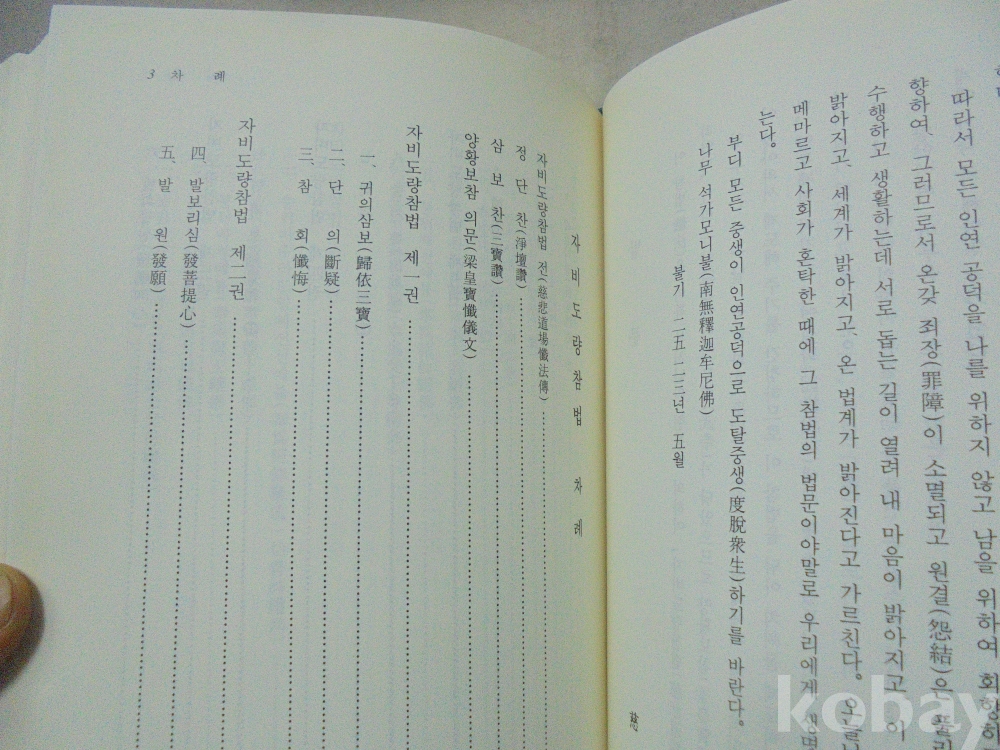 따라서 모든 인연 공덕을 나를 위하지 않고 남을 위하여 회향하
향하여, 그러므로서 온갖 죄장(罪障)이 소멸되고 원결(怨結)은 풀리
수행하고 생활하는데 서로 돕는 길이 열려 내 마음이 밝아지고 이
밝아지고, 세계가 밝아지고, 온 법계가 밝아진다고 가르친다. 오늘
메마르고 사회가 혼탁한 때에 그 참법의 법문이야말로 우리에게 생명
는다.
부디 모든 중생이 인연공덕으로 도탈중생(度脫衆生)하기를 바란다.
나무 석가모니불(南無釋迦牟尼佛)
불기 二五二三년 五월
3 차 례
자비도량참법 차례
자비도량참법 전(慈悲道場懺法傳)
정단찬(淨壇讚)
삼보찬(三寶讚)
양황보참 의문(梁皇寶懺儀文)
자비도량참법 제一권
一、귀의삼보(歸依三寶)
二、단 의(斷疑)
三、참 회(懺悔)
자비도량참법 제二권
四、발보리심(發菩提心)
五、발 원(發願)
kobay